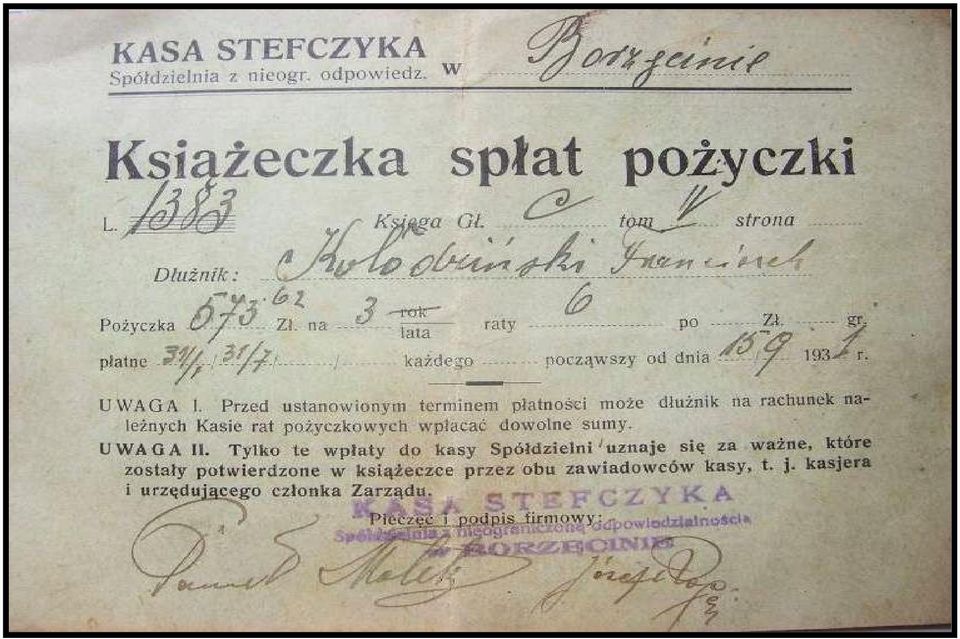 KASA STEFCZYKA
Spółdzielnia z nieogr. odpowiedz. w Borzęcinie
Książeczka spłat pożyczki
L. 1383 Księga Gł. C tom IV strona
Dłużnik: Kołodziński Franciszek
Pożyczka 573.62 Zł. na 3 rok lata raty 6 po Zł. gr.
płatne 31/1, 31/7 / każdego począwszy od dnia 15/9 1931 r.
UWAGA I. Przed ustanowionym terminem płatności może dłużnik na rachunek na-
leżnych Kasie rat pożyczkowych wpłacać dowolne sumy.
UWAGA II. Tylko te wpłaty do kasy Spółdzielni uznaje się za ważne, które
zostały potwierdzone w książeczce przez obu zawiadowców kasy, t. j. kasjera
i urzędującego członka Zarządu.
KASA STEFCZYKA
Pieczęć i podpis firmowy:
Spółdzielnia z nieograniczoną odpowiedzialnością
w BORZĘCINIE
Paweł Józef